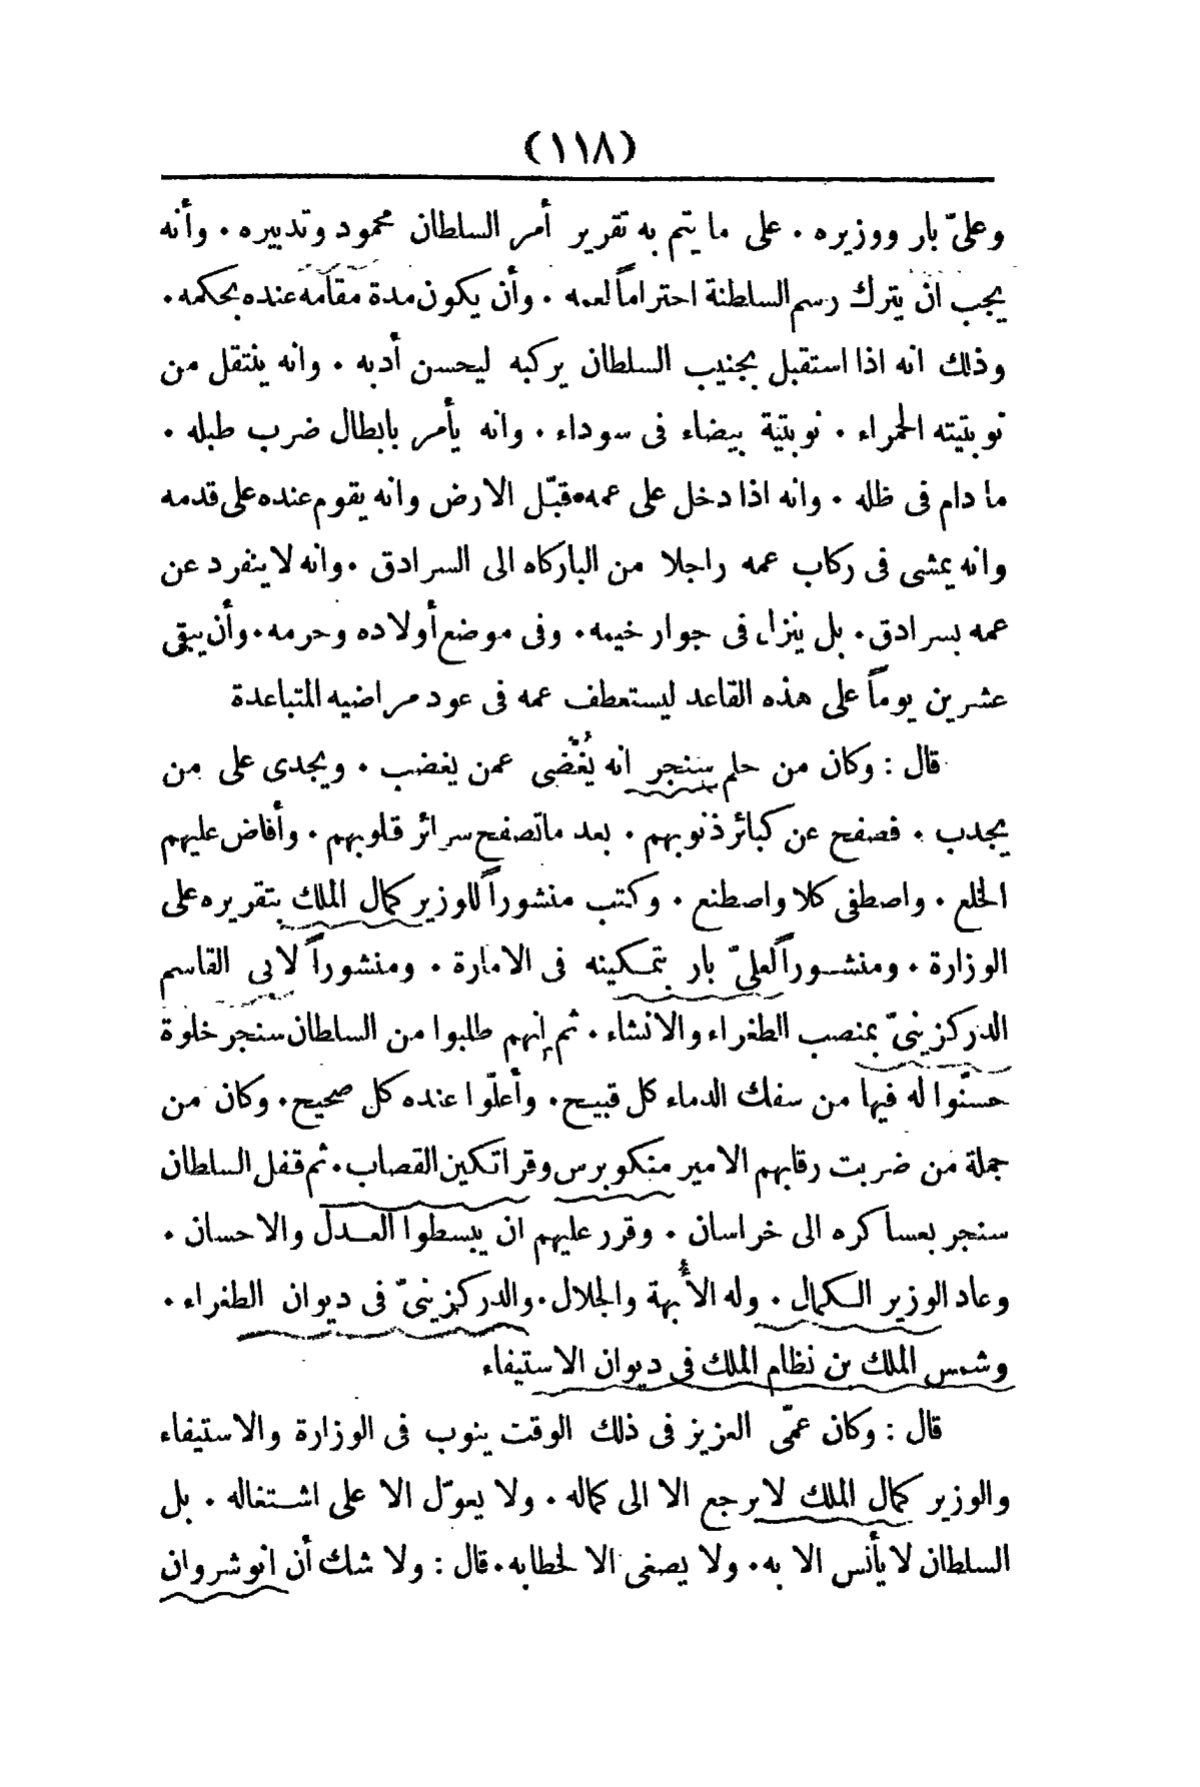 (١١٨)
وعلىّ بار ووزيره . على ما يتم به تقرير أمر السلطان محمود وتدبيره . وأنه
يجب ان يترك رسم السلطنة احتراماً لعمه . وأن يكون مدة مقامه عنده بحكمه .
وذلك انه اذا استقبل بجنيب السلطان يركبه ليحسن أدبه . وانه ينتقل من
نوبتيته الحمراء . نوبتيّة بيضاء فى سوداء . وانه يأمر بابطال ضرب طبله .
ما دام فى ظله . وانه اذا دخل على عمه قبّل الارض وانه يقوم عنده على قدمه
وانه يمشى فى ركاب عمه راجلا من الباركاه الى السرادق . وانه لا ينفرد عن
عمه بسرادق . بل ينزل فى جوار خيمه . وفى موضع أولاده وحرمه . وأن يبقى
عشرين يوماً على هذه القاعد ليستعطف عمه فى عود مراضيه المتباعدة
قال : وكان من حلم سنجر انه يُغْضى عمن يغضب . ويجدى على من
يجدب . فصفح عن كبائر ذنوبهم . بعد ما تصفح سرائر قلوبهم . وأفاض عليهم
الخلع . واصطفى كلا واصطنع . وكتب منشوراً للوزير كمال الملك بتقريره على
الوزارة . ومنشوراً لعلىّ بار بتمكينه فى الامارة . ومنشوراً لابى القاسم
الدركزينىّ بمنصب الطغراء والانشاء . ثم إنهم طلبوا من السلطان سنجر خلوة
حسنّوا له فيها من سفك الدماء كل قبيح . وأعلّوا عنده كل صحيح . وكان من
جملة من ضربت رقابهم الامير منكوبرس وقراتكين القصاب . ثم قفل السلطان
سنجر بعساكره الى خراسان . وقرر عليهم ان يبسطوا العدل والاحسان .
وعاد الوزير الكمال . وله الأُبهة والجلال . والدركزينىّ فى ديوان الطغراء .
وشمس الملك بن نظام الملك فى ديوان الاستيفاء
قال : وكان عمّى العزيز فى ذلك الوقت ينوب فى الوزارة والاستيفاء
والوزير كمال الملك لا يرجع الا الى كماله . ولا يعوّل الا على اشتغاله . بل
السلطان لا يأنس الا به . ولا يصغى الا لخطابه . قال : ولا شك أن انوشروان